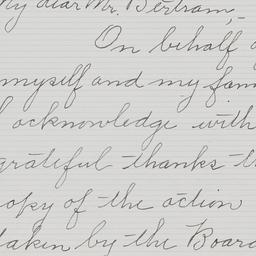 My dear Mr. Bertram,-
On behalf
myself and my fam
acknowledge with
grateful thanks th
opy of the action
taken by the Board